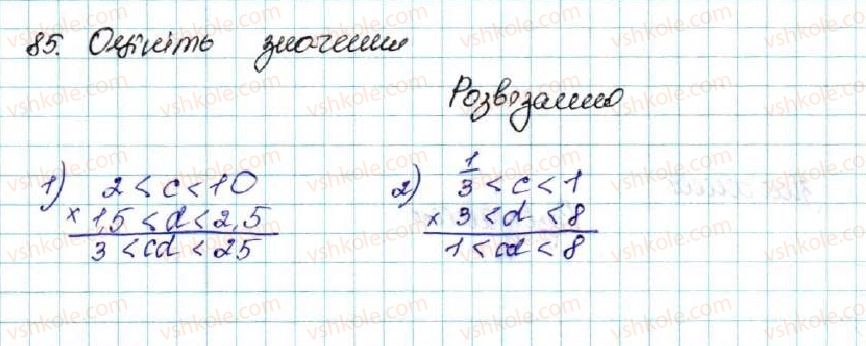 85. Оцініть значення
Розв'язання
1) 2 < c < 10
× 1,5 < d < 2,5
3 < cd < 25
2) 1/3 < c < 1
× 3 < d < 8
1 < cd < 8